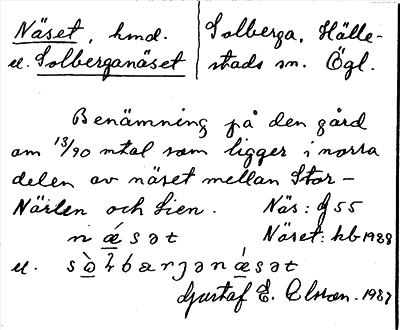 Näset, hmd. Solberga, Hälle-
el. Solberganäset stads sn. Ögl.
Benämning på den gård
om 13/90 mtal som ligger i norra
delen av näset mellan Stor-
Närlen och Lien. Näs: J 55
næ̀sət Näset: hb 1988
el. sɷ̀łbærjənǽsət
Gustaf E. Olsson. 1987